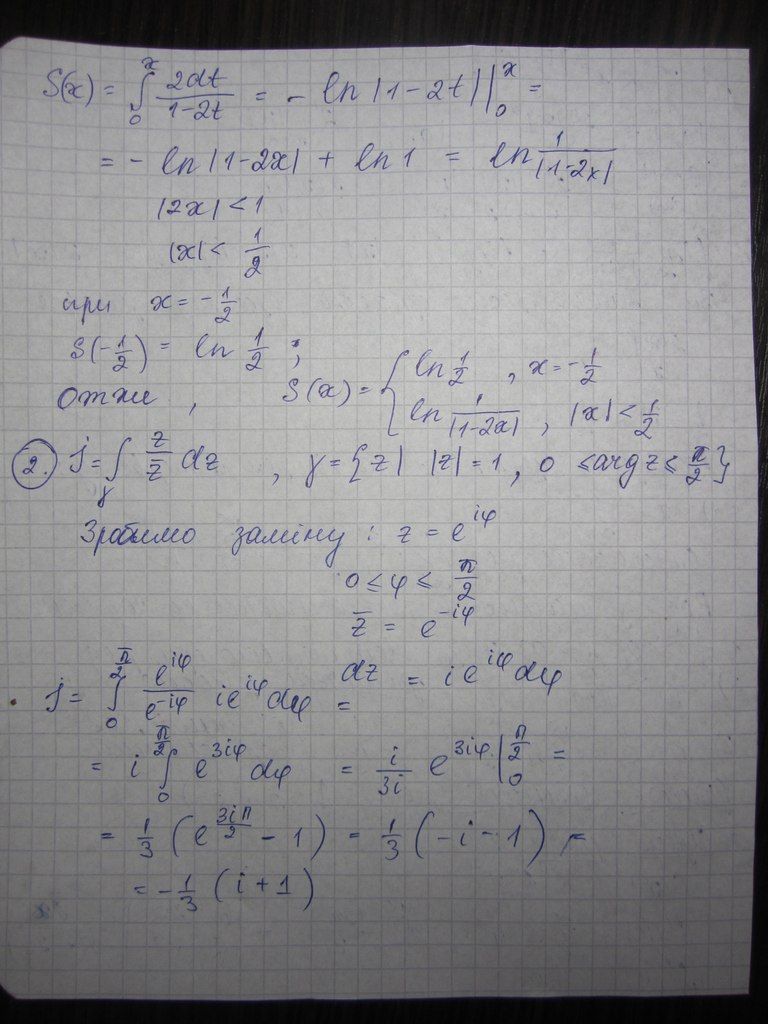 S(x) = ∫₀ˣ 2dt/(1-2t) = - ln |1-2t| |₀ˣ =
= - ln |1-2x| + ln 1 = ln 1/|1-2x|
|2x| < 1
|x| < 1/2
при x = -1/2
S(-1/2) = ln 1/2 ;
Отже , S(x) = { ln 1/2 , x = -1/2
ln 1/|1-2x| , |x| < 1/2
2. J = ∫_γ z/z̅ dz , γ = {z | |z| = 1, 0 ≤ arg z ≤ π/2}
Зробимо заміну : z = e^{iφ}
0 ≤ φ ≤ π/2
z̅ = e^{-iφ}
dz = i e^{iφ} dφ
J = ∫₀^{π/2} e^{iφ}/e^{-iφ} i e^{iφ} dφ =
= i ∫₀^{π/2} e^{3iφ} dφ = i/3i e^{3iφ} |₀^{π/2} =
= 1/3 (e^{3iπ/2} - 1) = 1/3 (-i - 1) =
= -1/3 (i + 1)